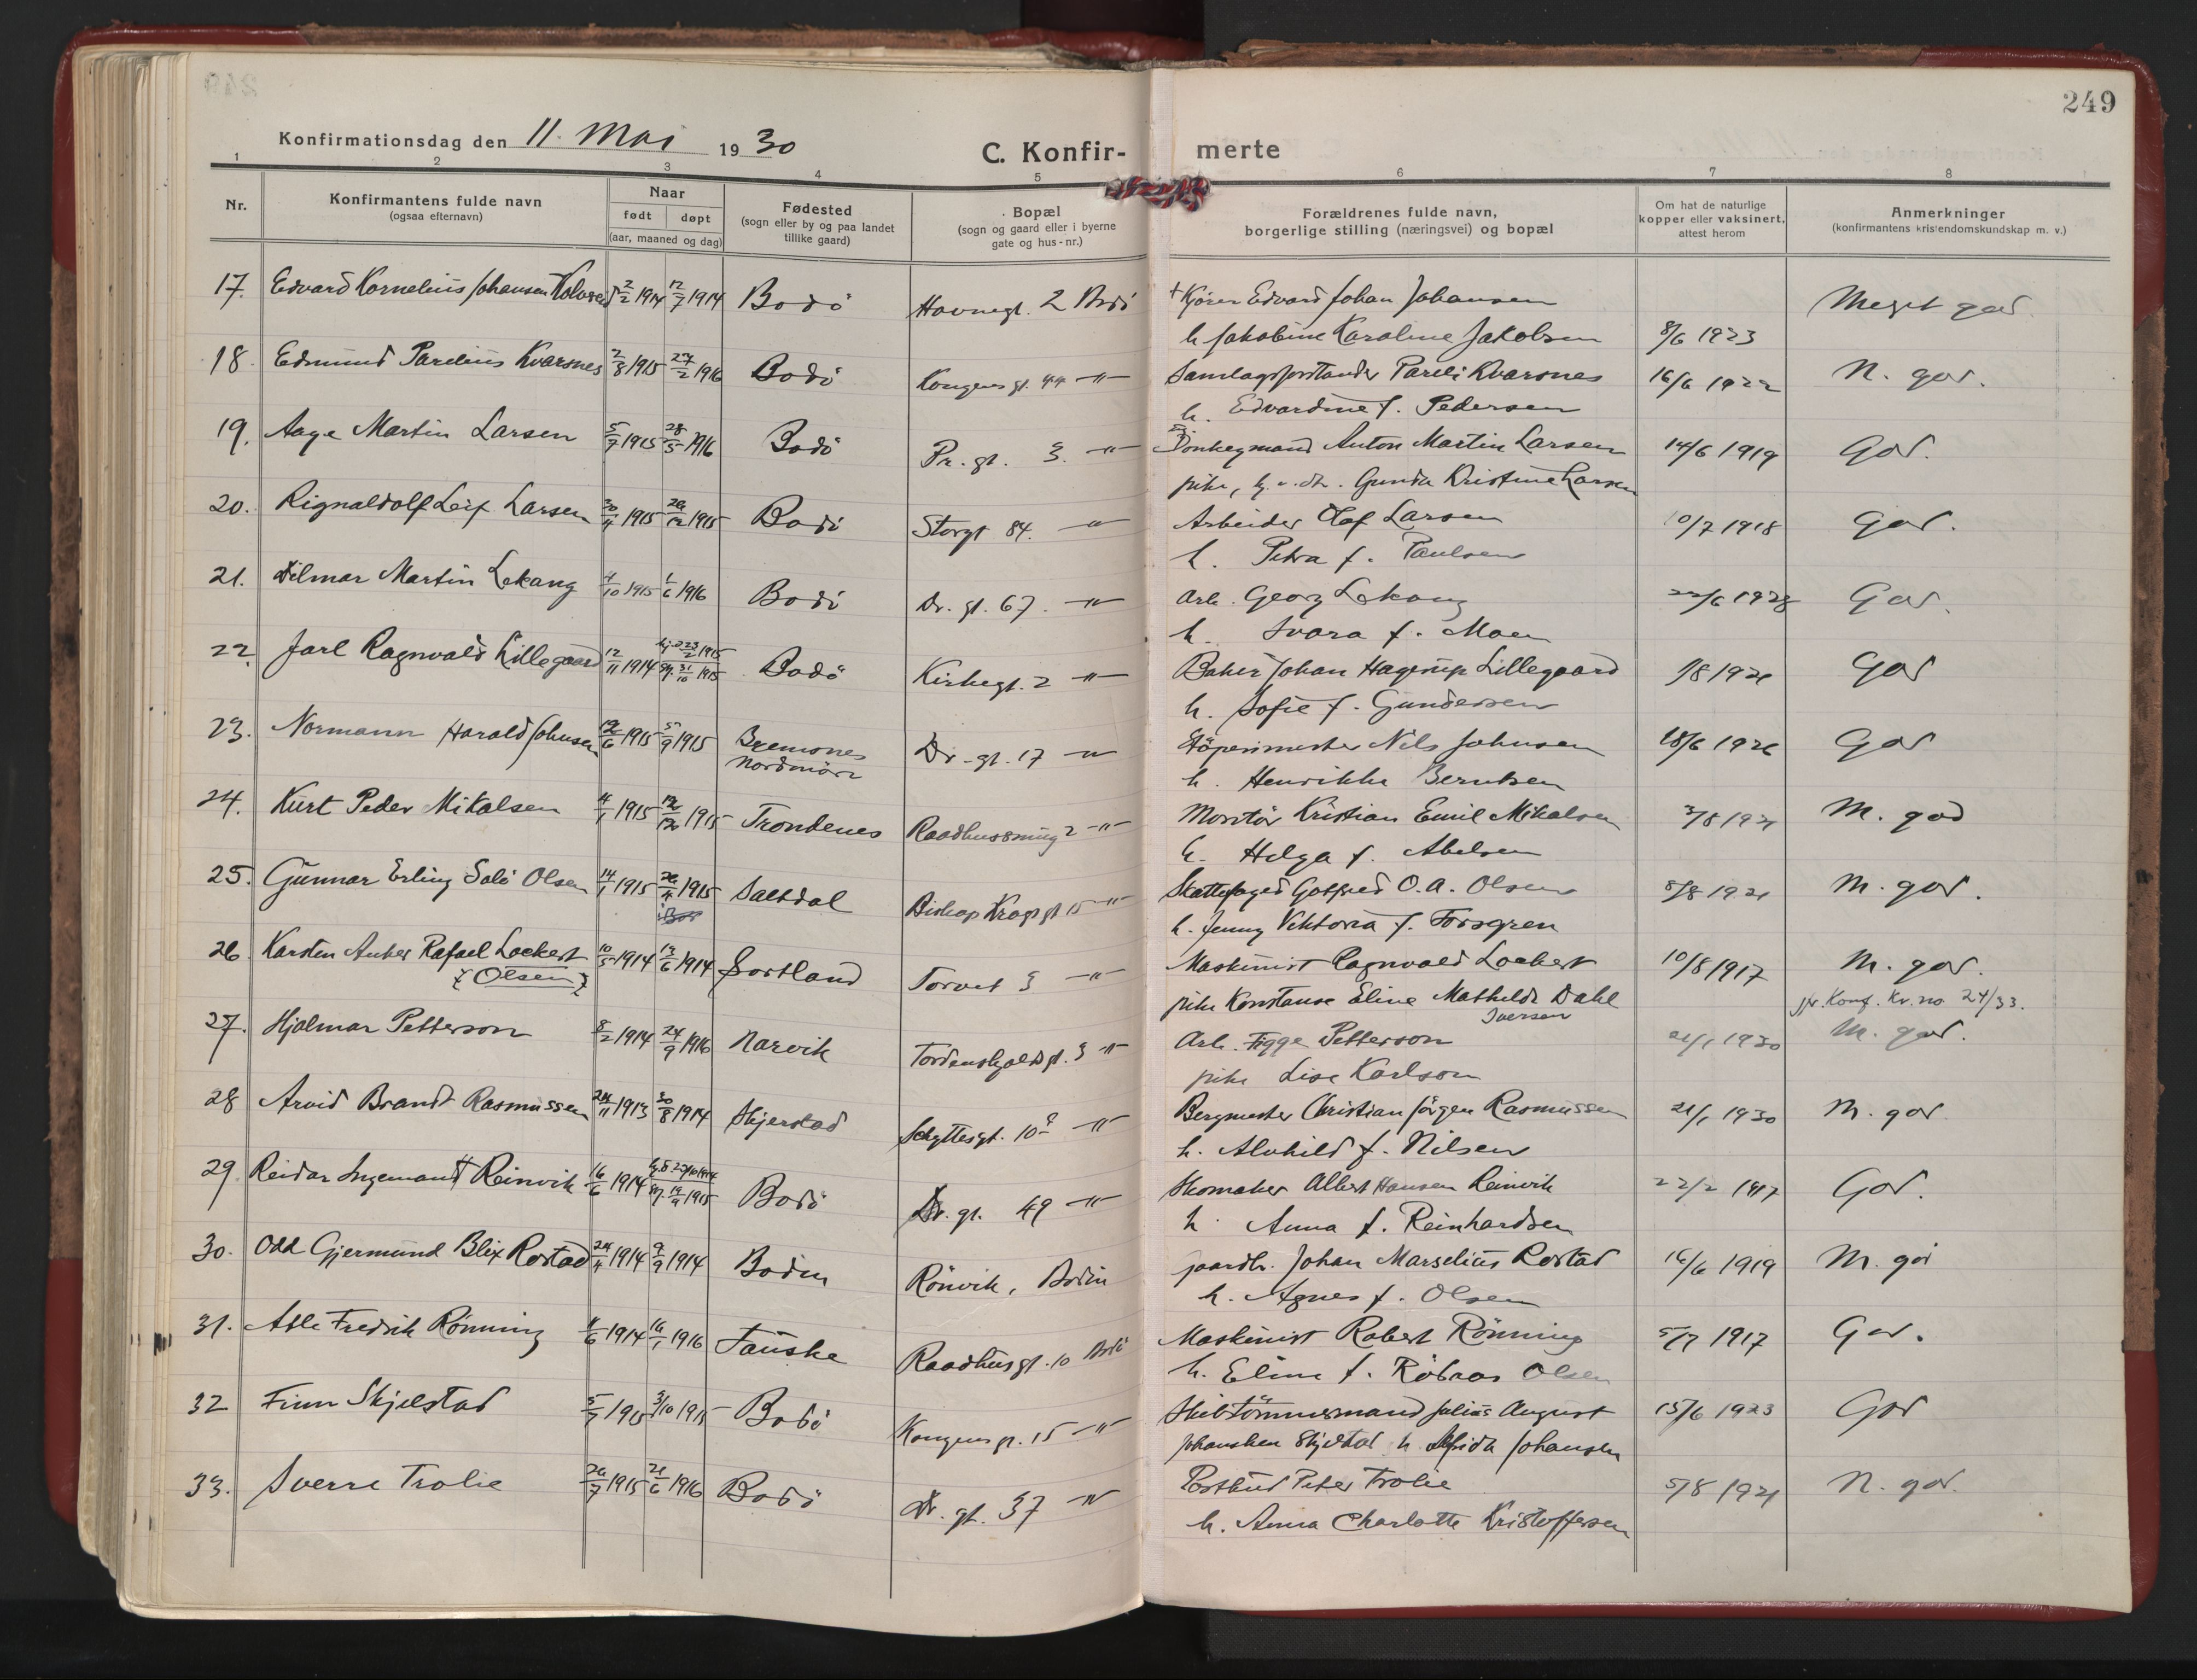 249
Konfirmationsdag den 11. Mai 1930
C. Konfir- merte
1 2 3 4 5 6 7 8
Nr.
Konfirmantens fulde navn
(ogsaa efternavn)
Naar
født døpt
(aar, maaned og dag)
Fødested
(sogn eller by og paa landet
tillike gaard)
Bopæl
(sogn og gaard eller i byerne
gate og hus-nr.)
Forældrenes fulde navn,
borgerlige stilling (næringsvei) og bopæl
Om hat de naturlige
kopper eller vaksinert,
attest herom
Anmerkninger
(konfirmantens kristendomskundskap m. v.)
17. Edvard Kornelius Johansen 2/2 1914 12/7 1914 Bodö Havnegt. 2 Bodö + Kjörer Edvard Johan Johansen Meget god
h. Jakobine Karoline Jakobsen 8/6 1923
18. Edmund Parelius Kvarsnes 2/8 1915 27/2 1916 Bodö Kongens gt. 44 -"- Samlagsforstander Pareli Kvarsnes 16/6 1922 N. god.
h. Edvardine f. Pedersen
19. Aage Martin Larsen 5/7 1915 28/5 1916 Bodö Pr. gt. 3. -"- Donkeymand Anton Martin Larsen 14/6 1919 God.
pike, Gunda Kristine Larsen
20. Rignaldolf Leif Larsen 30/4 1915 26/12 1915 Bodö Storgt 84. -"- Arbeider Olaf Larsen 10/7 1918 God.
h. Petra f. Paulsen
21. Dilmar Martin Lekang 4/10 1915 1/6 1916 Bodö Dr. gt. 67. -"- Arb. Georg Lekang 22/6 1928 God.
h. Svara f. Moen
22. Jarl Ragnvald Lillegaard 12/11 1914 hj.d. 23/2 1915 31/10 1915 Bodö Kirkegt. 2 -"- Baker Johan Hagerup Lillegaard God
h. Sofie f. Gundersen
23. Normann Harald Johnsen 12/6 1915 5/9 1915 Bremsnes
Nordmöre Dr. gt. 17 -"- Støperimester Nils Johnsen 18/6 1926 God
h. Henrikke Berntsen
24. Kurt Peder Mikalsen 4/1 1915 12/12 1915 Trondenes Raadhussmug 2 -"- Montör Kristian Emil Mikalsen 3/8 1921 M. god
h. Helga f. Abelsen
25. Gunnar Erling Solö Olsen 14/1 1915 26/4 1915 Saltdal Biskop Krogs gt 15 -"- Skattefoged Gotfred O. A. Olsen 5/8 1921 M. god.
h. Jenny Viktoria f. Forsgren
26. Karsten Anker Rafael Lockert 10/5 1914 14/6 1914 Sortland Torvet 3 -"- Maskinist Ragnvald Lockert 10/8 1917 M. god.
{Olsen} pike Konstanse Eline Mathilde Dahl
Iversen jfr. Konf. Kr. no 24/33.
27. Hjalmar Petterson 8/2 1914 24/9 1916 Narvik Tordenskjoldsgt. 3 -"- Arb. Figge Petterson 21/1 1930 M. god.
pike Lise Karlson
28 Arvid Brandt Rasmussen 24/11 1913 30/8 1914 Skjerstad Schyttesgt. 10 -"- Bergmester Christian Jörgen Rasmussen 21/1 1930 M. god.
h. Alvhild f. Nilsen
29. Reidar Ingemann Reinvik 16/6 1914 hj.d. 27/10 1914 12/9 1915 Bodö Dr. gt. 49 -"- Skomaker Albert Hansen Reinvik 22/2 1917 God.
h. Anna f. Reinhardsen
30. Odd Gjermund Blix Rostad 24/4 1914 9/9 1914 Bodin Rönvik, Bodin Gaardbr. Johan Marselius Rostad 16/6 1919 M. god
h. Agnes f. Olsen
31. Atle Fredrik Rönning 4/6 1914 16/1 1916 Fauske Raadhusgt. 10 Bodö Maskinist Robert Rönning 5/7 1917 God.
h. Eline f. Olsen
32 Finn Skjelstad 5/7 1915 3/10 1915 Bodö Kongensgt. 15 -"- Skibstömmermand Julius August 15/6 1923 God
Johansken Skjelstad h. Alfrida Johansen
33. Sverre Trolie 26/7 1915 21/6 1916 Bodö Dr. gt. 37 -"- Postbud Peter Trolie 5/8 1921 N. god.
h. Anna Charlotte Kristoffersen